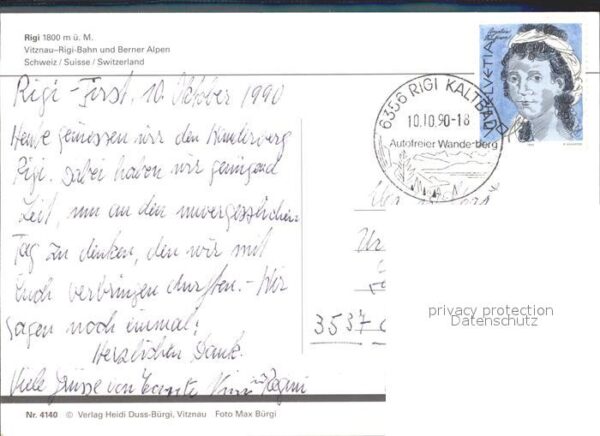 Rigi 1800 m ü. M.
Vitznau–Rigi-Bahn und Berner Alpen
Schweiz / Suisse / Switzerland
Rigi - First, 10. Oktober 1990
Heute geniessen wir den Wanderberg
Rigi. Dabei haben wir genügend
Zeit, um an den unvergesslichen
Tag zu denken, den wir mit
Euch verbringen durften. - Wir
sagen noch einmal:
Herzlichen Dank.
Viele Grüsse von
6356 RIGI KALTBAD
10.10.90-18
Autofreier Wanderberg
HELVETIA
3537
privacy protection
Datenschutz
Nr. 4140 © Verlag Heidi Duss-Bürgi, Vitznau Foto Max Bürgi